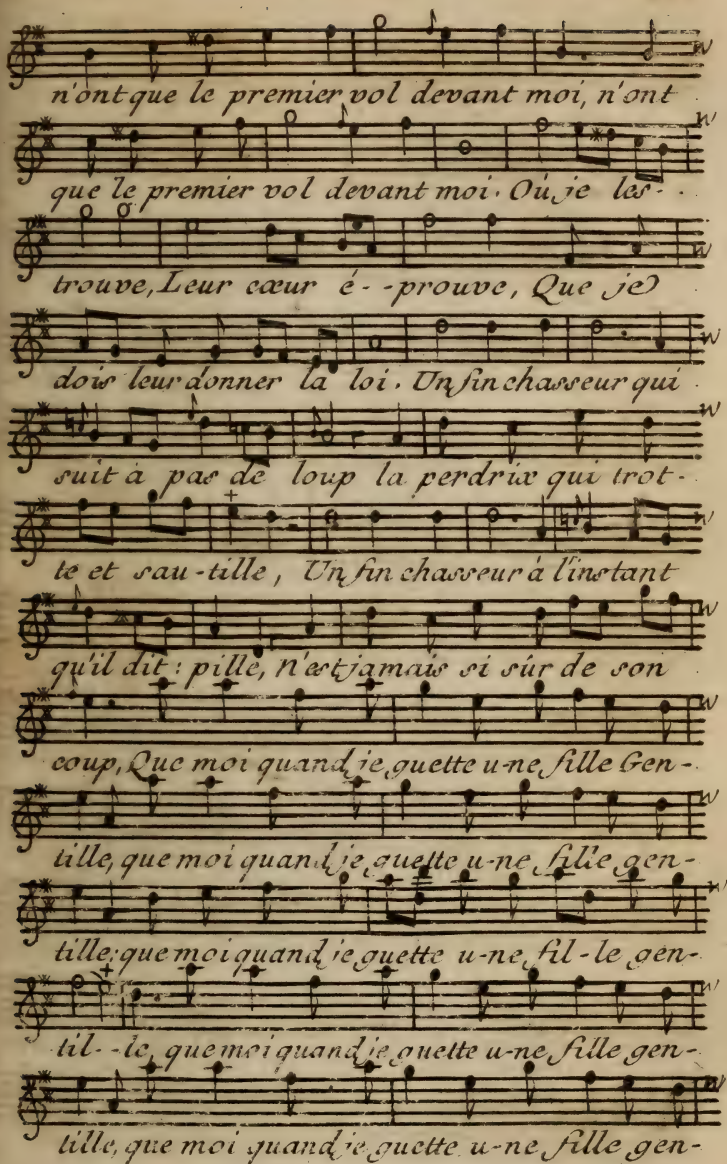 n'ont que le premier vol devant moi, n'ont
que le premier vol devant moi. Où je les-
trouve, Leur cœur é--prouve, Que je
dois leur donner la loi. Un fin chasseur qui
suit à pas de loup la perdrix qui trot-
te et sau-tille, Un fin chasseur à l'instant
qu'il dit: pille, n'est jamais si sûr de son
coup, Que moi quand je guette u-ne fille Gen-
tille, que moi quand je guette u-ne fille gen-
tille; que moi quand je guette u-ne fil-le gen-
til--le, que moi quand je guette u-ne fille gen-
tille, que moi quand je guette u-ne fille gen-